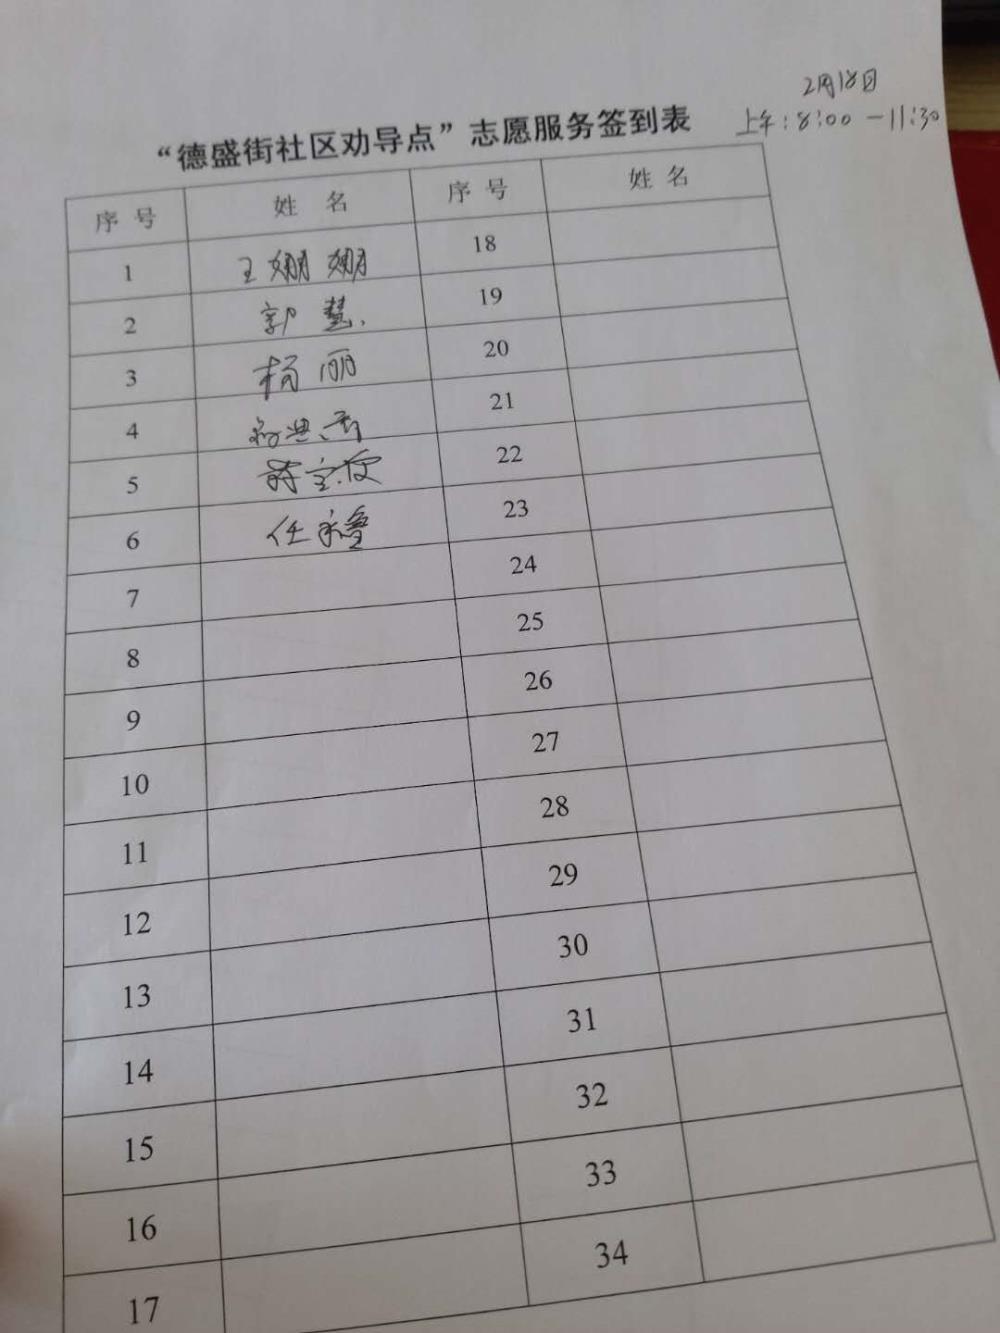 2月18日
上午：8:00-11:30
“德盛街社区劝导点”志愿服务签到表
序号 姓名 序号 姓名
1 王姗姗 18
2 郭慧 19
3 杨丽 20
4 21
5 22
6 任永鲁 23
7 24
8 25
9 26
10 27
11 28
12 29
13 30
14 31
15 32
16 33
17 34